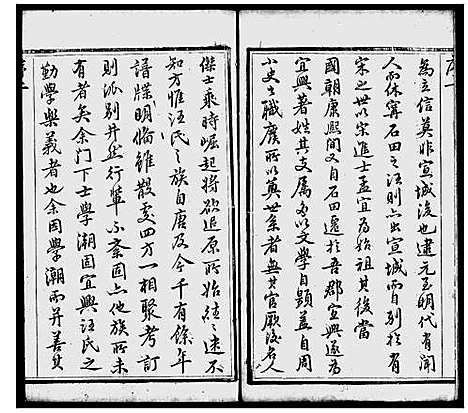 序一
為立信莫非宣城後也逮元至明代有聞
人而休寧石田之汪則亦出宣城而自別於有
宋之世以宋進士孟宜為始祖其後當
國朝康熙間又自石田遷於吾郡宜興遂為
宜興著姓其支属多以文學自顯蓋自周
小史之職廢所以奠世系者無其官厥後名人
傑士乘時崛起將欲追原所始往往迷不
知方惟汪氏之族自唐及今千有餘年
譜牒明備雖散處四方一相聚考訂
則派別井然行輩不紊固亦他族所未
有者矣余門下士學潮固宜興汪氏之
勤學樂義者也余因學潮而并善其